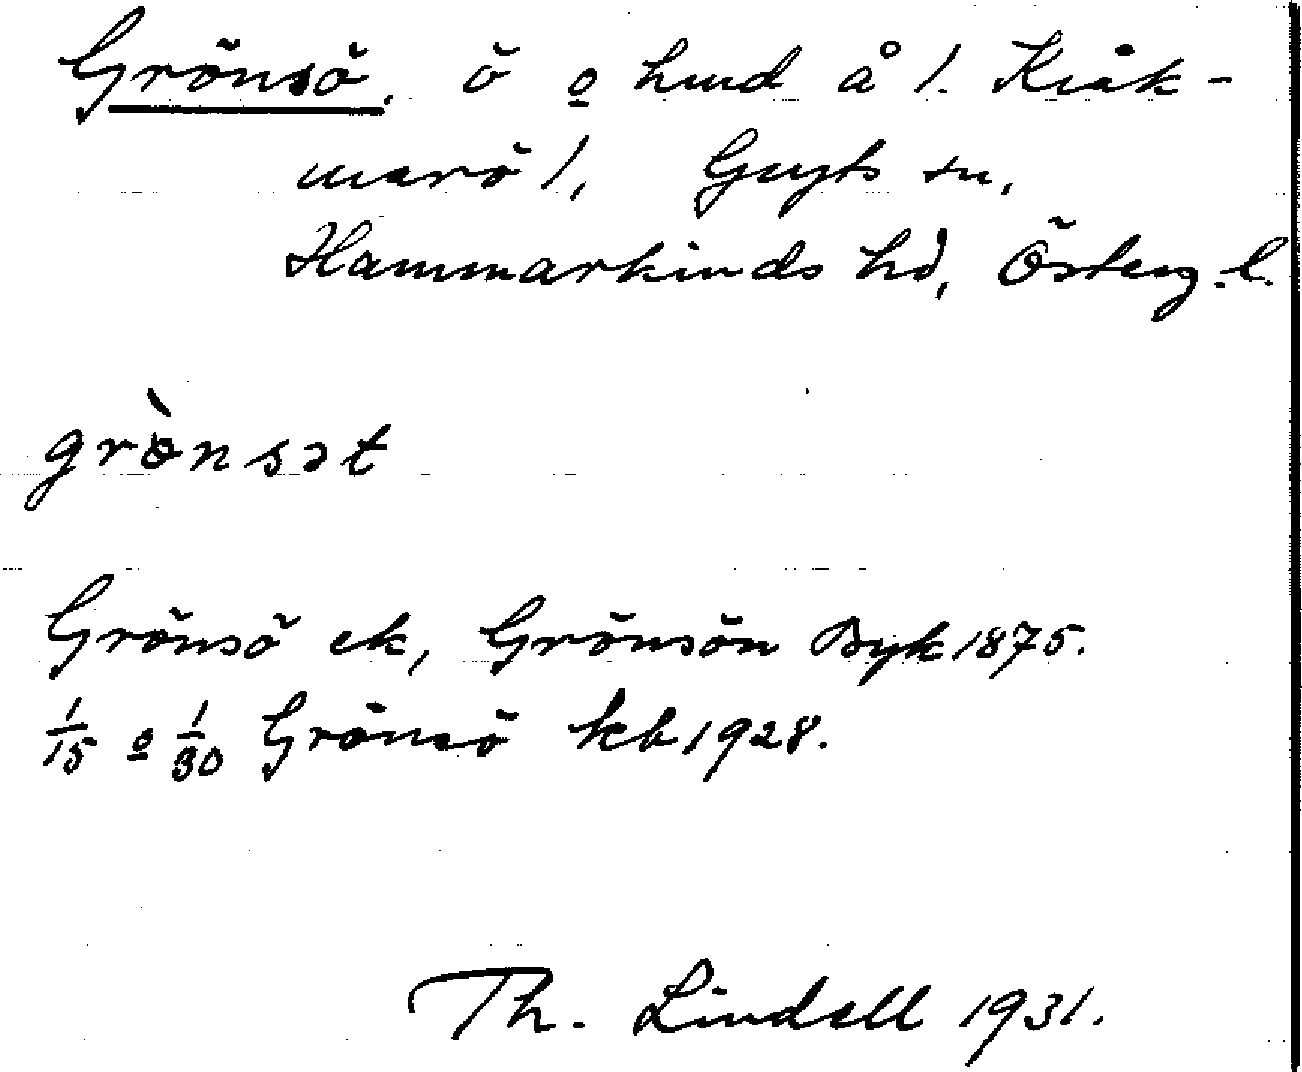 Grönsö, ö o hmd å 1. Kråk-
marö 1, Gryts sn,
Hammarkinds hd, Österg.l.
grὸ̈nsət
Grönsö ek, Grönsön Byk 1875.
1/15 o 1/30 Grönsö kb 1928.
Th. Lindell 1931.